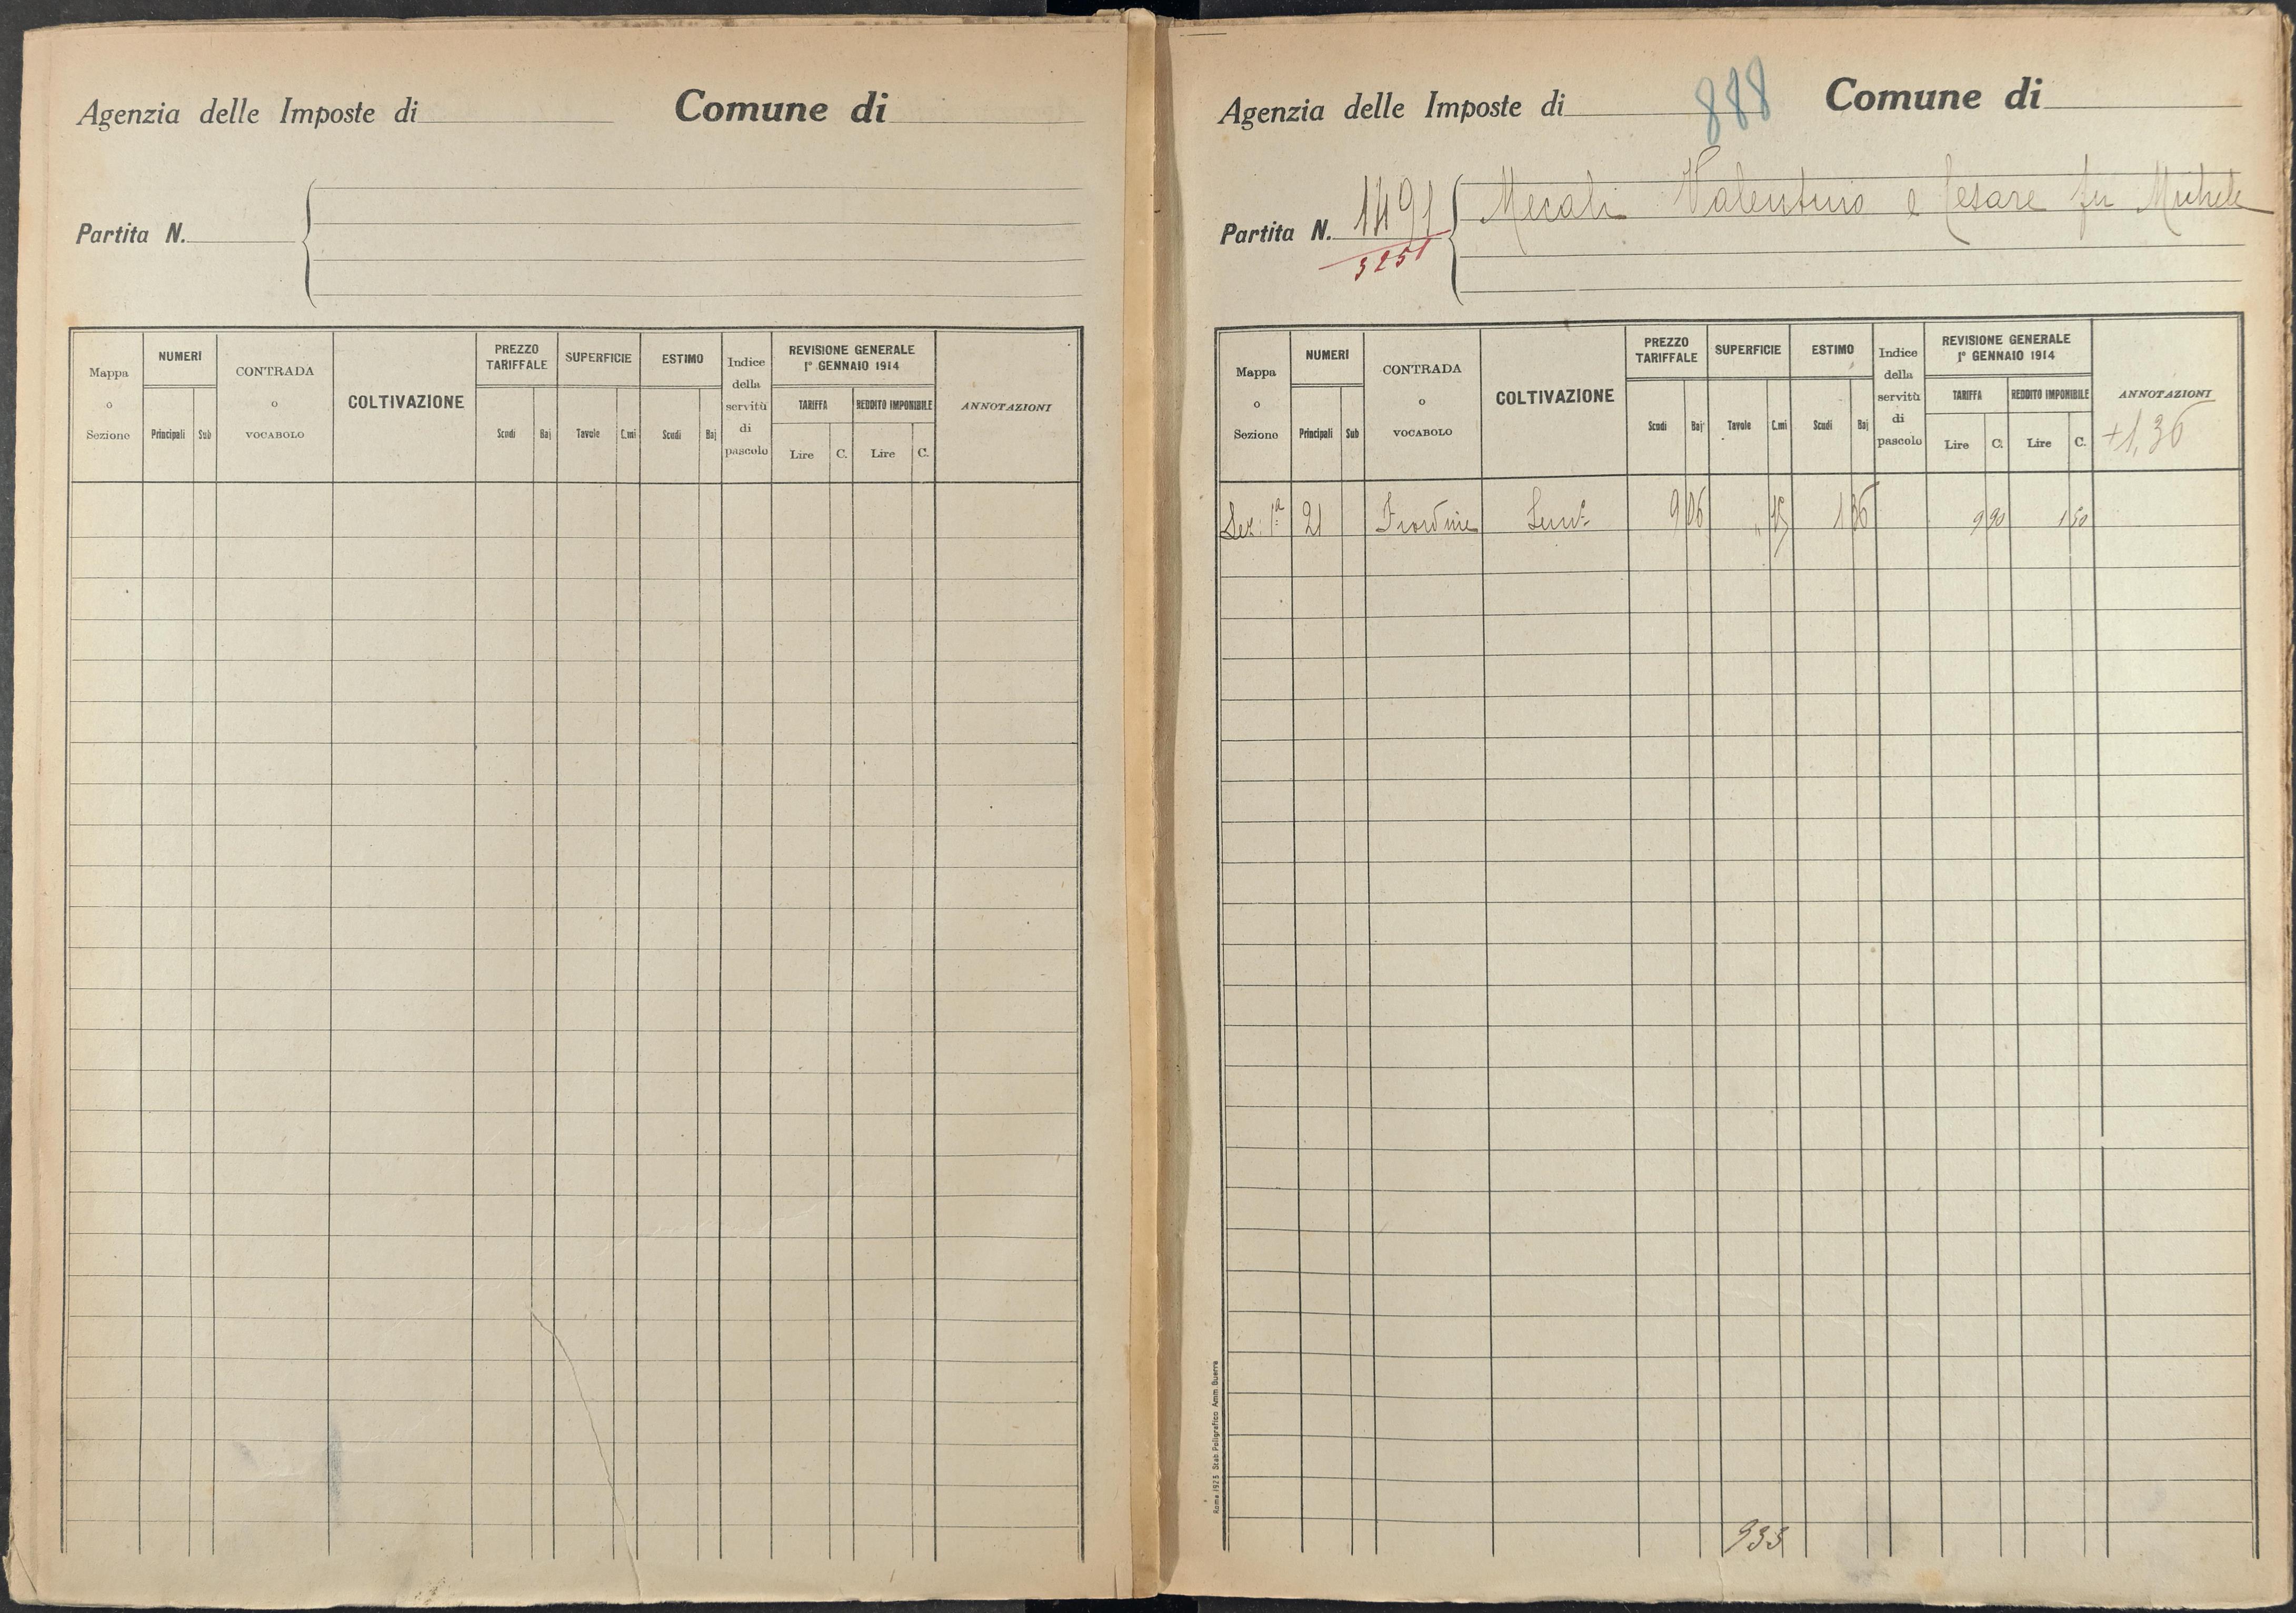 Agenzia delle Imposte di
Comune di
Partita N.
Mappa o Sezione
NUMERI
Principali
Sub
CONTRADA o VOCABOLO
COLTIVAZIONE
PREZZO TARIFFALE
Scudi
Baj
SUPERFICIE
Tavole
C.mi
ESTIMO
Scudi
Baj
Indice della servitù di pascolo
REVISIONE GENERALE
1° GENNAIO 1914
TARIFFA
REDDITO IMPONIBILE
Lire
C.
Lire
C.
ANNOTAZIONI
888
Agenzia delle Imposte di
Comune di
Partita N. 1491
3251
Mecali Valentino e Cesare fu Michele
Mappa o Sezione
NUMERI
Principali
Sub
CONTRADA o VOCABOLO
COLTIVAZIONE
PREZZO TARIFFALE
Scudi
Baj
SUPERFICIE
Tavole
C.mi
ESTIMO
Scudi
Baj
Indice della servitù di pascolo
REVISIONE GENERALE
1° GENNAIO 1914
TARIFFA
REDDITO IMPONIBILE
Lire
C.
Lire
C.
ANNOTAZIONI
+1,36
Sez. 1ª 21 9 06 " 15 1 36 9 90 1 50
933
Roma 1925 Stab. Poligrafico Amm. Guerra